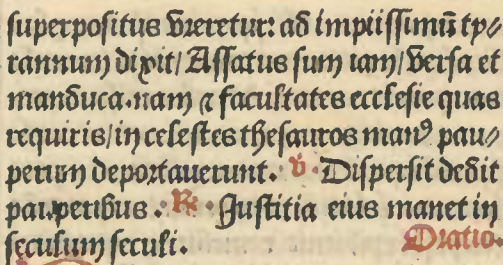 superpositus vreretur: ad impiissimū ty⸗
rannum dixit/ Assatus sum iam/ versa et
manduca. nam ⁊ facultates ecclesie quas
requiris/ in celestes thesauros manꝰ pau⸗
perum deportauerunt. ℣. Dispersit dedit
pauperibus. ℟. Justitia eius manet in
seculum seculi. Oratio.